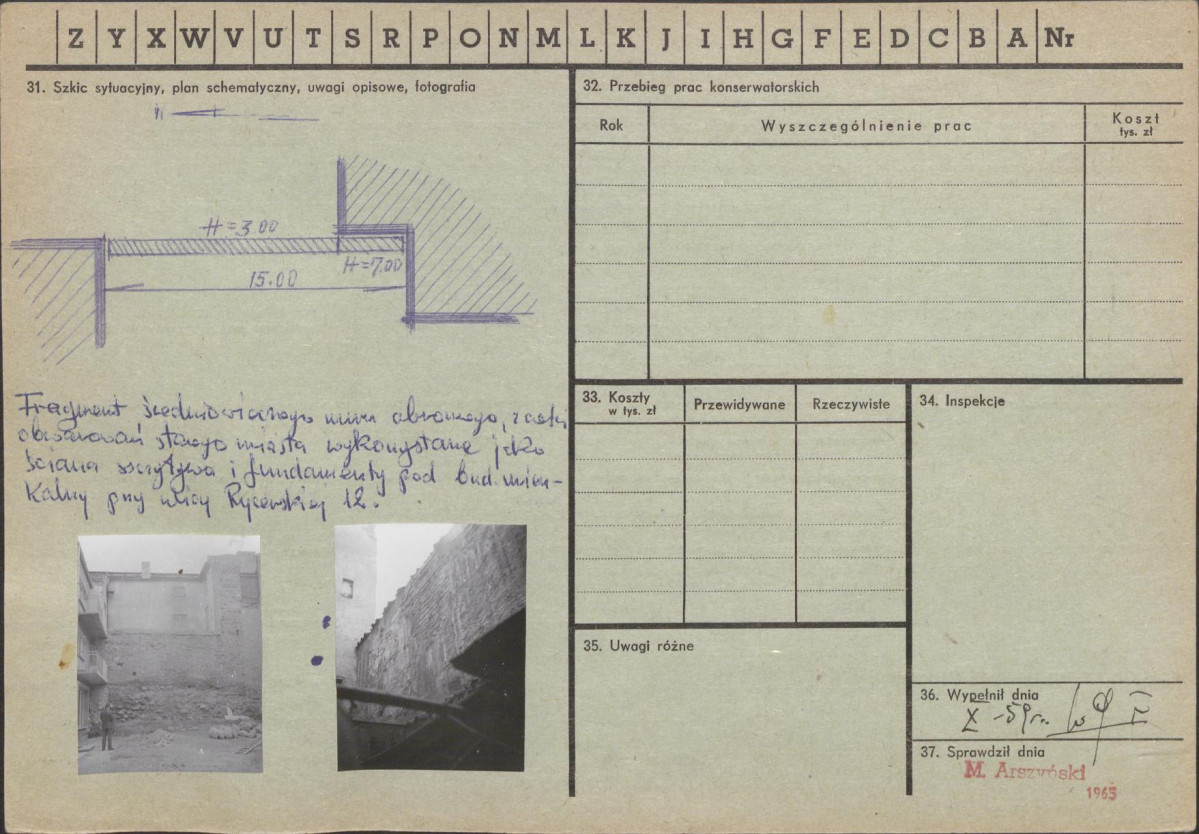 Z Y X W V U T S R P O N M L K J I H G F E D C B A Nr
31. Szkic sytuacyjny, plan schematyczny, uwagi opisowe, fotografia
H = 3.00
H = 7.00
15.00
Fragment średniowiecznego muru obronnego, części
obwarowań starego miasta wykorzystane jako
ściana szczytowa i fundamenty pod bud. miesz-
kalny przy ulicy Rycerskiej 12.
32. Przebieg prac konserwatorskich
Rok
Wyszczególnienie prac
Koszt
tys. zł
33. Koszty
w tys. zł
Przewidywane
Rzeczywiste
34. Inspekcje
35. Uwagi różne
36. Wypełnił dnia
X - 59 r.
37. Sprawdził dnia
M. Arszyński
1965